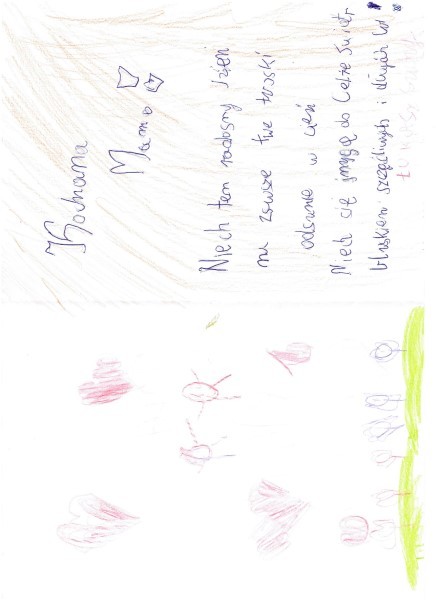 Kochana
Mamo
Niech ten radosny dzień
na zawsze twe troski
odsunie w cień
Niech się do Cebie Świat,
blaskiem szczęśliwych i długich lat